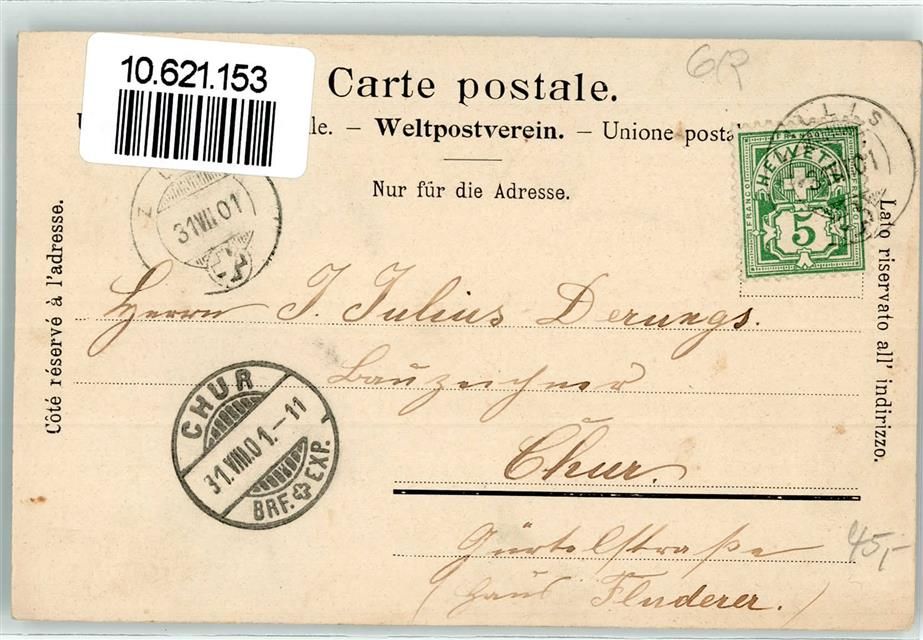 10.621.153
Carte postale.
le. – Weltpostverein. – Unione posta
Nur für die Adresse.
Côté réservé à l'adresse.
Lato riservato all' indirizzo.
6R
HELVETIA
FRANCO
5
Z
31.VIII.01
LLIS
01
Herrn J. Julius Derungs.
Bauzeichner
Chur.
Gürtelstraße
(Haus Fluderer.)
CHUR
31.VIII.01.–11
BRF. EXP.
45,-